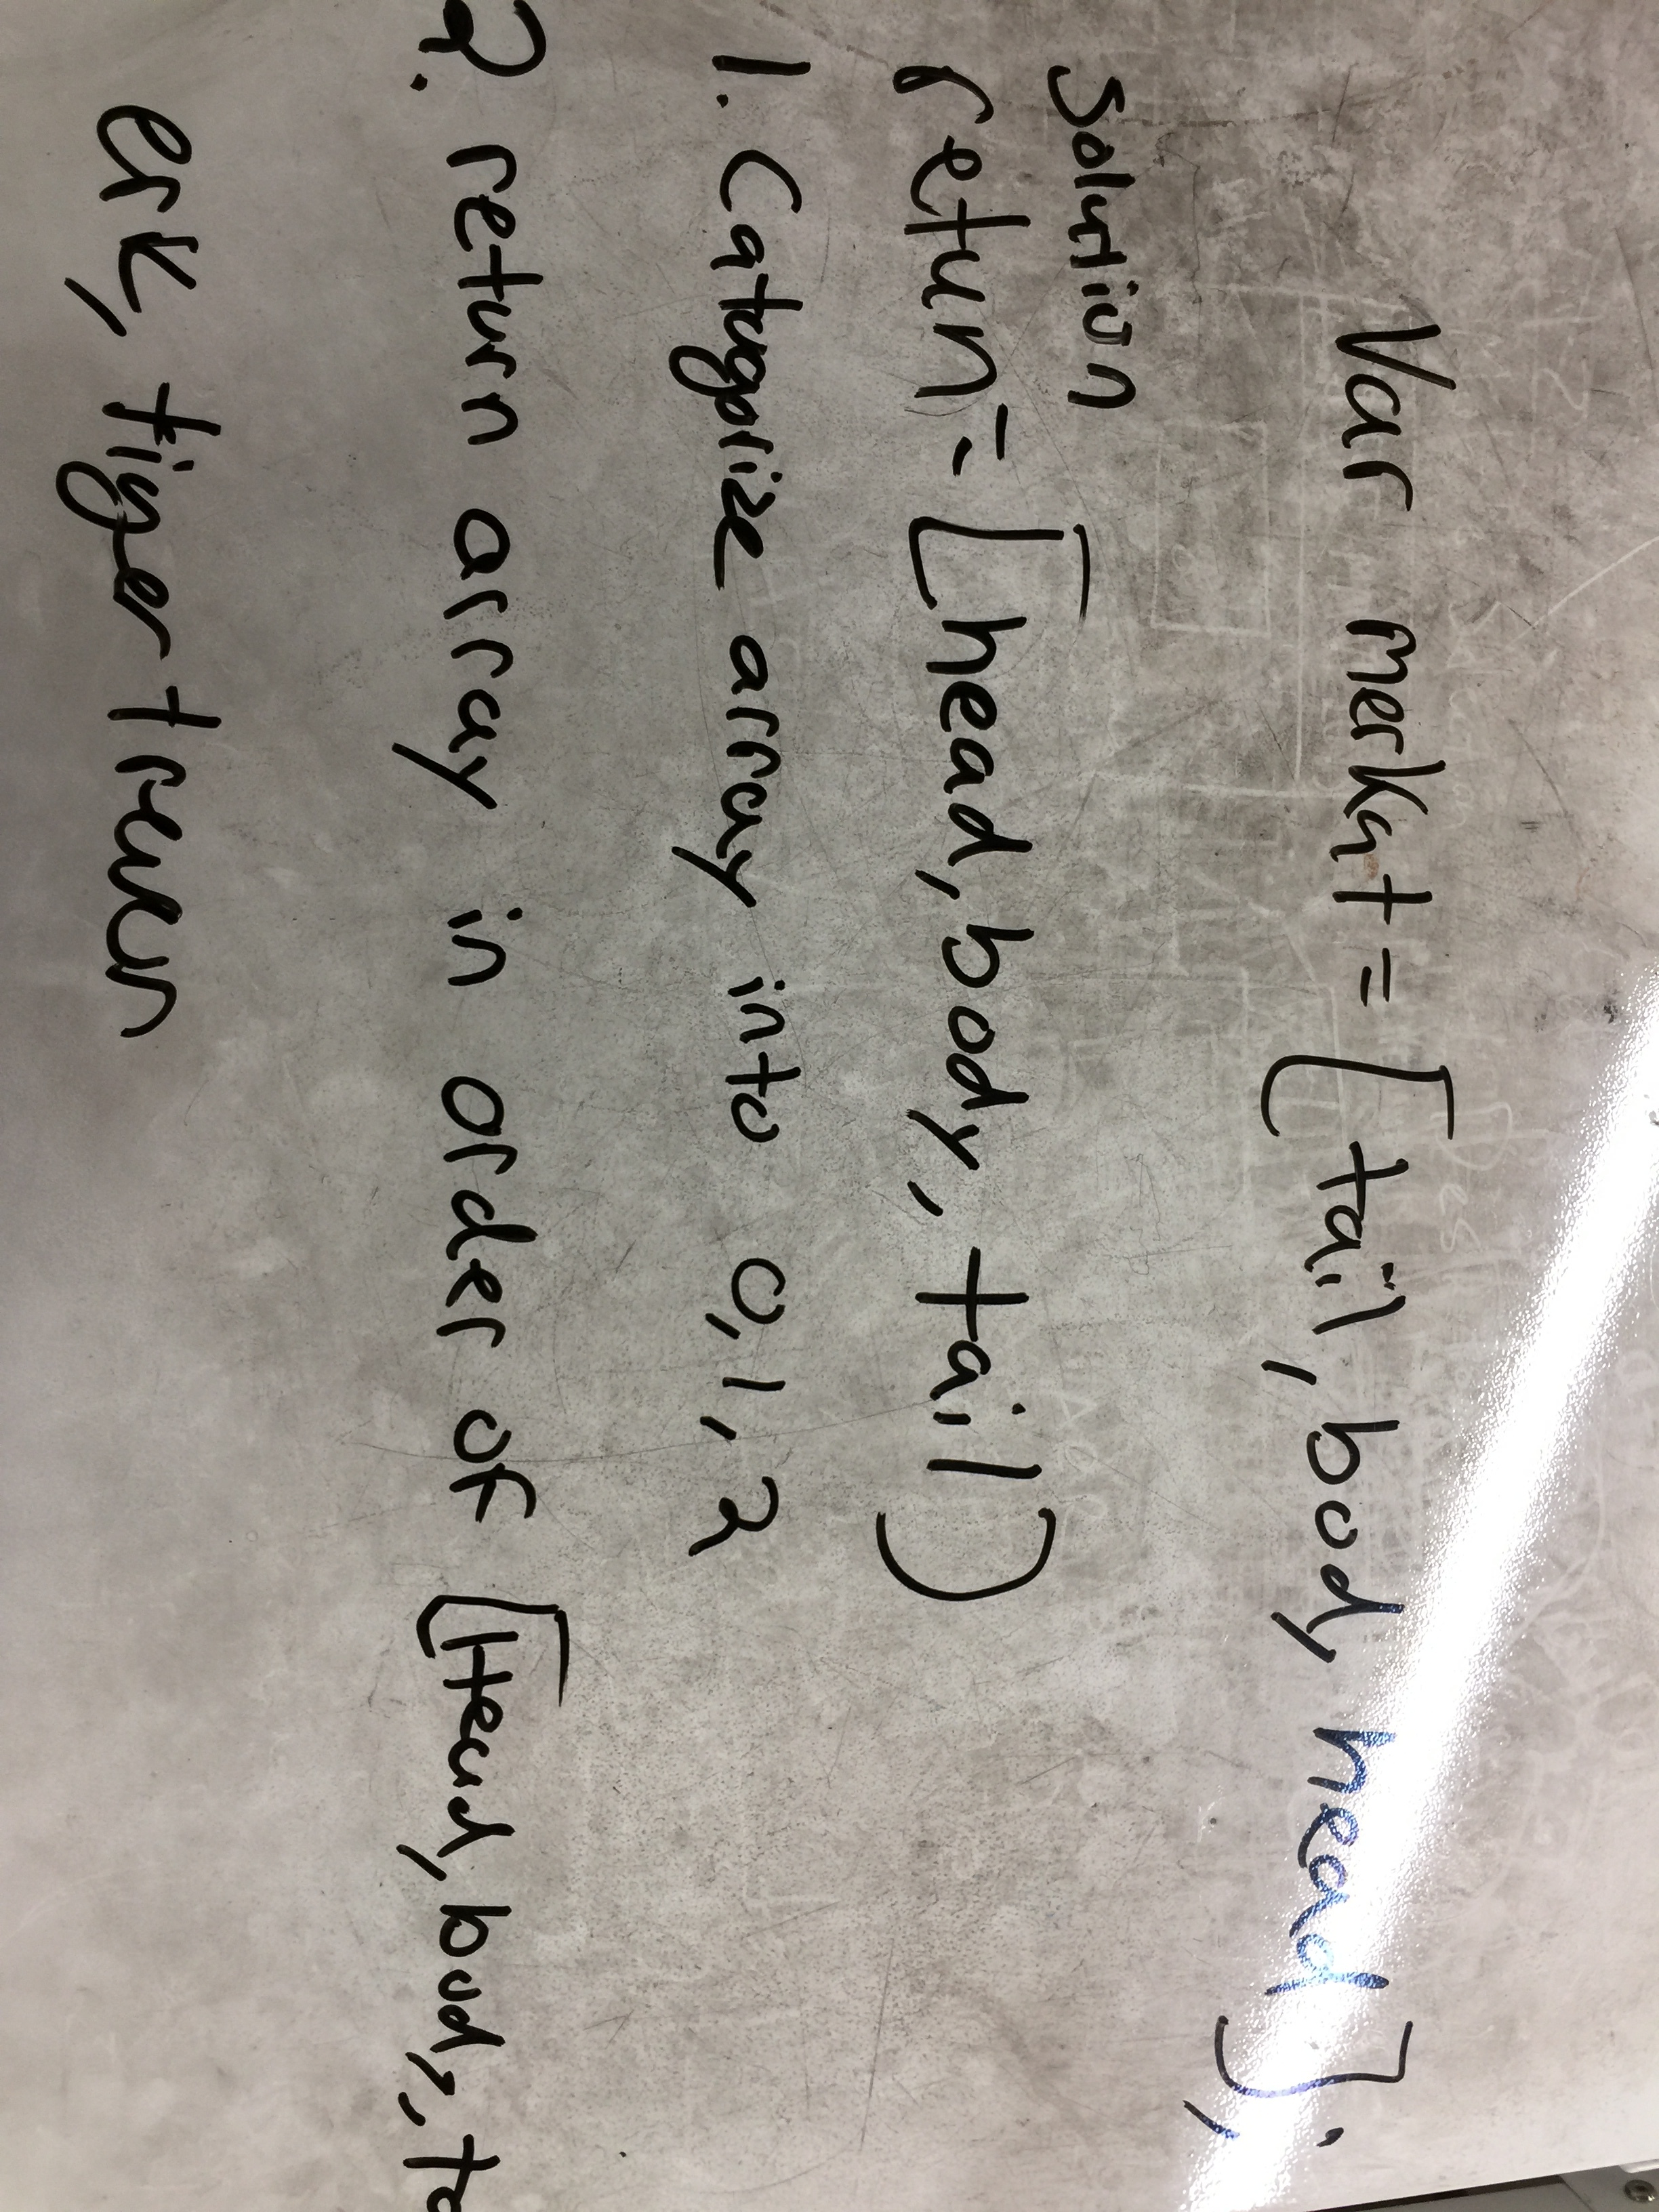 Var merkat = [tail, body, head];
Solution
return = [head, body, tail)
1. Catugorize array into 0, 1, 2
2. return array in order of [Head, body, ta
erk, tiger